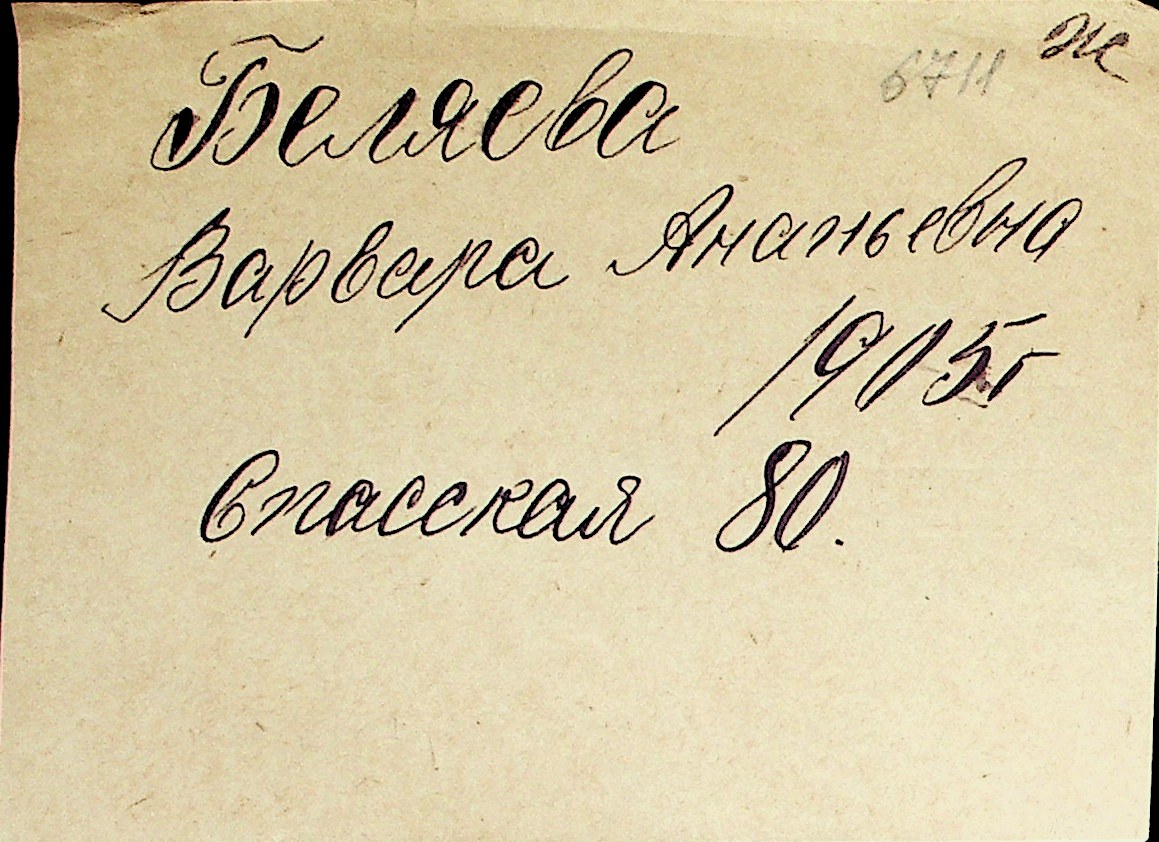 6711 Ж
Беляева
Варвара Ананьевна
1905г
Спасская 80.